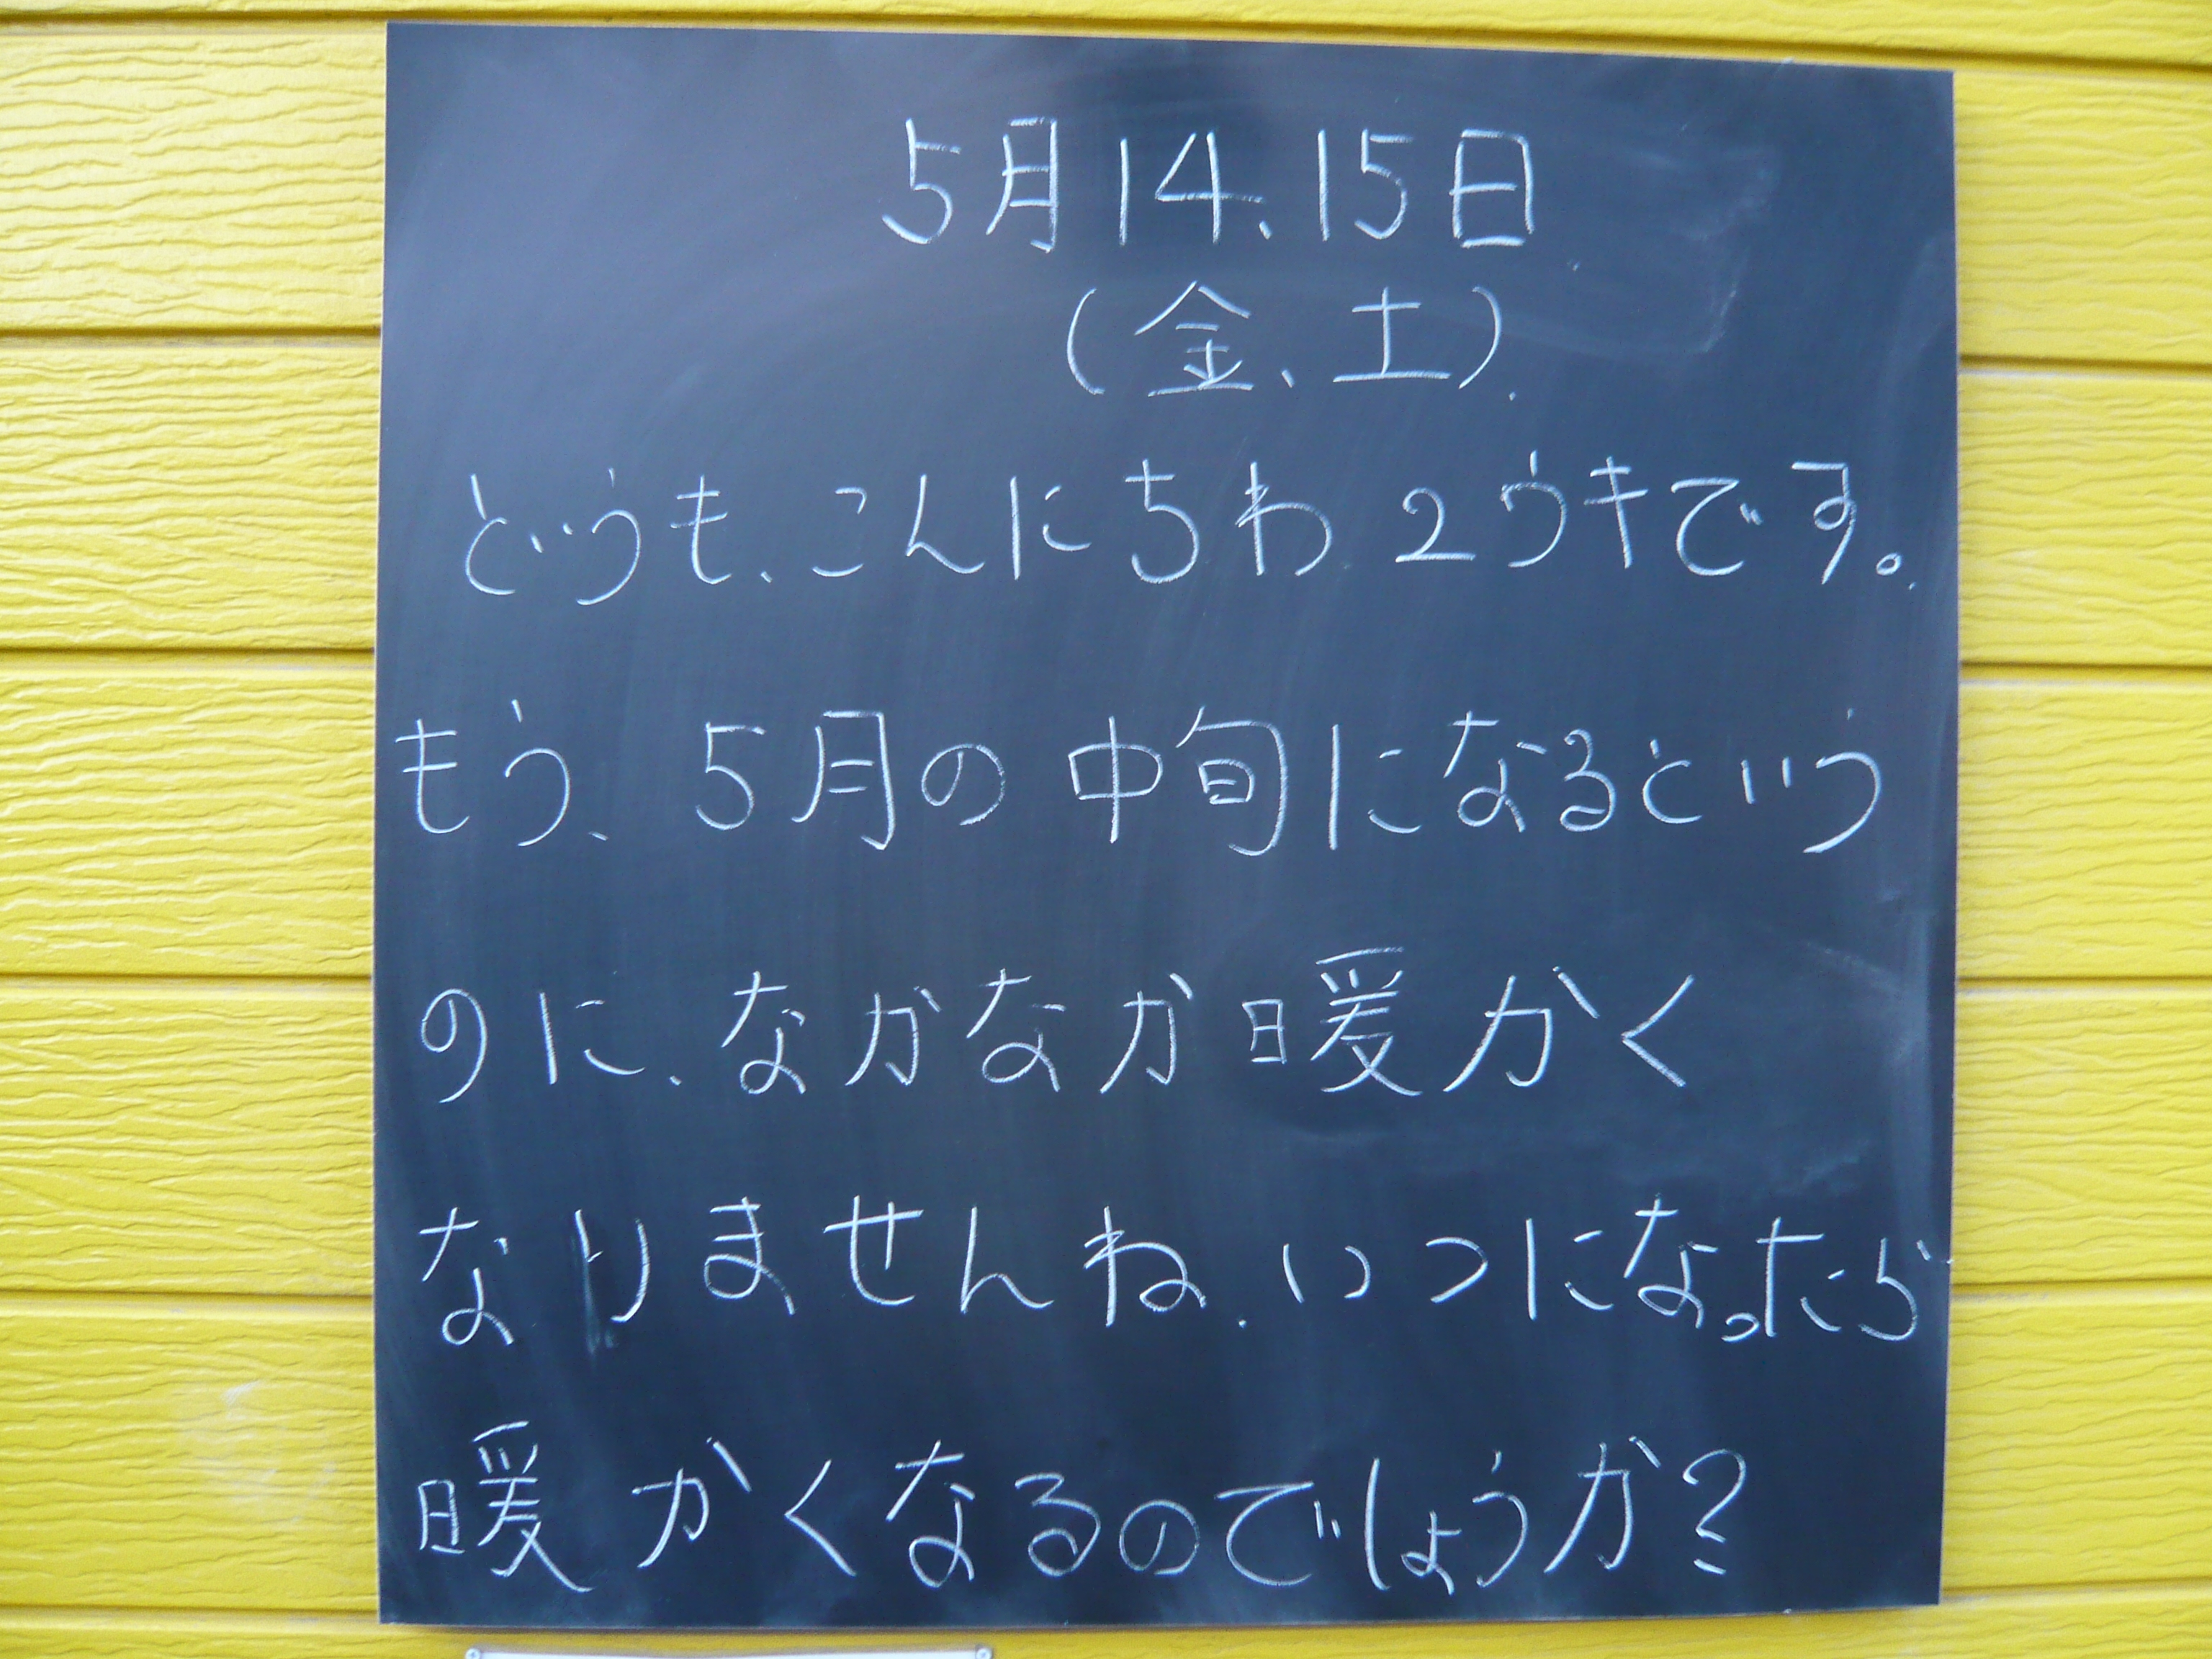 5月14、15日
(金、土).
どうも、こんにちわ 2ウキです。
もう、5月の中旬になるという
のに、なかなか暖かく
なりませんね、いつになったら
暖かくなるのでしょうか?